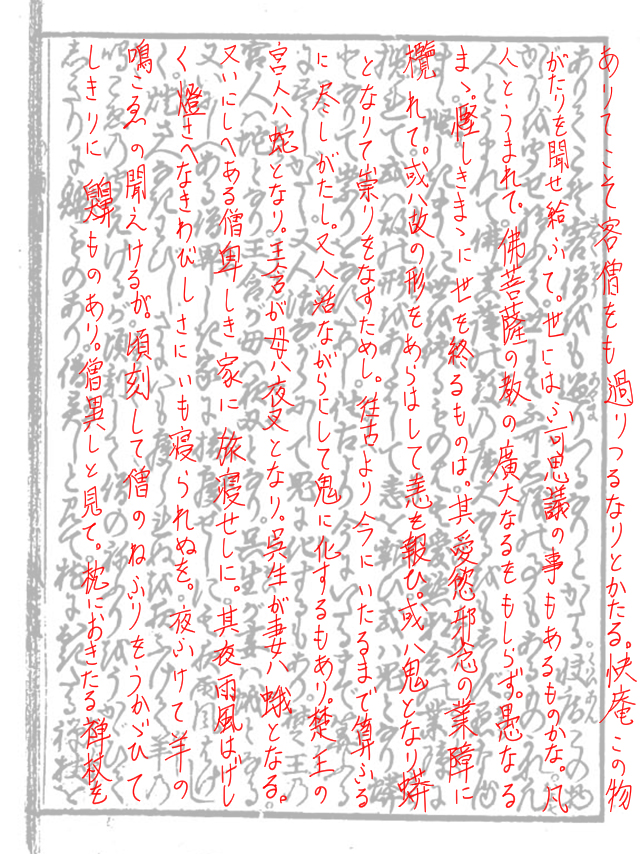 ありてこそ客僧をも過りつるなりとかたる。快庵この物
がたりを聞せ給ふて。世にはふ可思議の事もあるものかな。凡
人とうまれて。佛菩薩の教の廣大なるをもしらず。愚なる
まゝ慳しきまゝに世を終るものは。其愛慾邪念の業障に
攬れて。或ハ故の形をあらはして恚を報ひ。或ハ鬼となり蟒
となりて祟りをなすためし。往古より今にいたるまで算ふる
に尽しがたし。又人活ながらにして鬼に化するもあり。楚王の
宮人ハ蛇となり。王含が母ハ夜叉となり。呉生が妻ハ蛾となる。
又いにしへある僧卑しき家に旅寝せしに。其夜雨風はげし
く。燈さへなきわびしさにいも寝られぬを。夜ふけて羊の
鳴こゑの聞えけるが。頃刻して僧のねふりをうかゞひて
しきりに齅ものあり。僧異しと見て。枕におきたる禅杖を